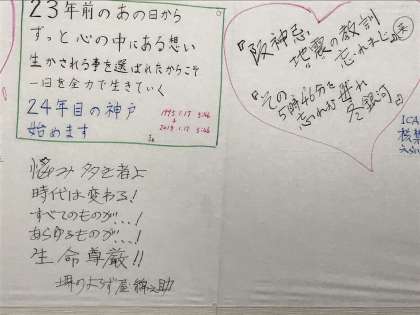 23年前のあの日から
ずっと心の中にある想い
生かされる事を選ばれたからこそ
一日を全力で生きていく
24年目の神戸
始めます
1995.1.17 5:46
2018.1.17 5:46
『阪神忌
地震の教訓
忘れまじ』
『その
5時46分を
忘れまじ
冬銀河』
ICA
核
悩み多き者よ
時代は変わる!
すべてのものが…!
あらゆるものが…!
生命尊厳!!
堺のよろず屋 錦之助